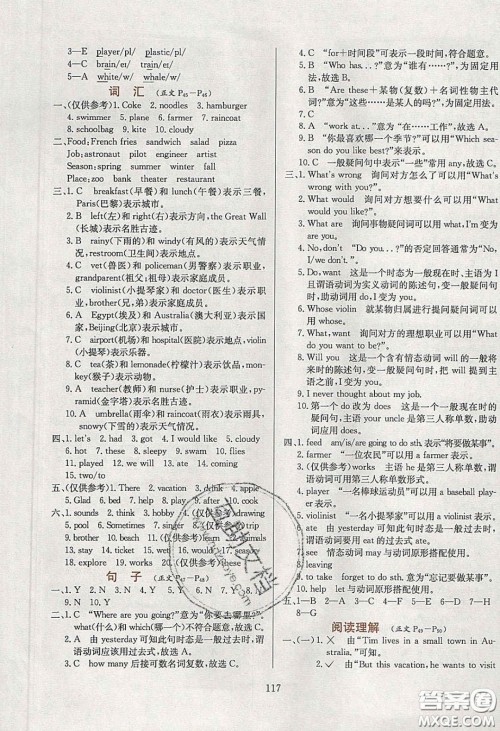 3—E player/pl/ plastic/pl/
4—C brain/eɪ/ train/eɪ/
5—A white/w/ whale/w/
词 汇 (正文 P₄₅—P₄₆)
一、(仅供参考)1. Coke 2. noodles 3. hamburger
4. swimmer 5. plane 6. farmer 7. raincoat
8. schoolbag 9. kite 10. cold
二、Food: French fries sandwich salad pizza
Job: astronaut pilot engineer artist
Season: spring summer winter fall
Place: zoo bank theater restaurant
三、1. C breakfast(早餐)和 lunch(午餐)表示三餐,
Paris(巴黎)表示城市。
2. B left(左)和 right(右)表示方向, the Great Wall
(长城)表示名胜古迹。
3. B rainy(下雨的)和 windy(有风的)表示天气情
况, restroom(卫生间)表示地点。
4. C vet(兽医)和 policeman(男警察)表示职业,
grandparent(祖父;祖母)表示家庭成员。
5. B violin(小提琴)和 doctor(医生)表示职
业, brother(兄,弟)表示家庭成员。
6. A Egypt(埃及)和 Australia(澳大利亚)表示国
家, Beijing(北京)表示城市。
7. C airport(机场)和 hospital(医院)表示地点, violin
(小提琴)表示乐器。
8. C tea(茶)和 lemonade(柠檬汁)表示饮品, mon-
key(猴子)表示动物。
9. A teacher(教师)和 nurse(护士)表示职业, py-
ramid(金字塔)表示名胜古迹。
10. A umbrella(雨伞)和 raincoat(雨衣)表示雨具,
snowy(下雪的)表示天气情况。
四、1. let's 2. had 3. got 4. I would like 5. healthy
6. hot 7. see 8. sleeping 9. is wearing
10. two/to
五、(仅供参考)1. There 2. vacation 3. drink 4. apple
5. Glad 6. bed 7. help 8. cold
六、1. sounds 2. think 3. hobby (仅供参考)4. drawing
5. pool 6. Sometimes 7. singer (仅供参考)8. first
9. brother 10. beach 11. home 12. went
13. stay 14. ticket 15. wet 16. would
17. read (仅供参考)18. elephant 19. see 20. explore
句 子 (正文 P₄₇—P₄₈)
一、1. Y 2. N 3. Y 4. N 5. Y 6. N 7. Y
8. N 9. N 10. Y
二、1. C “Where are you going?”意为“你要去哪里?”。
what(什么)和 which(哪一个)不符合题意。
2. A 由 yesterday 可知句子时态为一般过去时,谓
语动词应用过去式,故选 A。
3. C how many 后接可数名词复数,故选 C。
4. C “for+时间段”可表示一段时间,符合题意。
5. B “Who has...?”意为“谁有……?”,为固定用
法,故选 B。
6. B “Are these+某物(复数)+名词性物主代
词?”意为“这些……是某人的吗?”,为固定用
法,故选 B。
7. A “work at...”意为“在……工作”,故选 A。
8. C “你最喜欢哪一个季节?”可以用“Which sea-
son do you like best?”表达,故选 C。
10. C 一般疑问句中表示“一些”常用 any,故选 C。
三、1. What's wrong 询问对方怎么了可以用“What's
wrong with you?”。
2. What would 询问对方想要什么可以用“What
would you like?”。
3. What are 询问事物疑问词可以用 what, I'm 变
为 are you。
4. No, don't “Do you...?”的否定回答通常为
“No, I don't.”。
5. Do, have 这是一个时态为一般现在时,主语为 I
且谓语动词为实义动词的陈述句,变一般疑问
句时,需在句首加 Do。
6. Whose, it 就某物归属进行提问可以用疑问词
whose。
7. What, want 询问对方的理想职业可以用“What
do you want to be?”。
8. Will you 这是一个含有情态动词 will 的一般
将来时的陈述句,变一般疑问句时,把 will
提前即可。
9. never thought about
10. does 第一个 do 改为 does 这是一个一般现在时的
疑问句,主语 your uncle 是第三人称单数,助
动词应用 does。
四、1. feed am/is/are going to do sth. 表示“将要做某事”。
2. farmer “一位农民”可以用 a farmer 表示。
3. (仅供参考)works 主语 he 是第三人称单数,谓
语动词应用第三人称单数形式。
4. player “一名棒球运动员”可以用 a baseball play-
er 表示。
5. violinist “一个小提琴家”可以用 a violinist 表示。
6. ate 由 yesterday 可知句子时态是一般过去时,
谓语动词要用过去式,eat 的过去式是 ate。
7. see 情态动词 may 与动词原形搭配使用。
8. leaving
9. to take forget to do sth. 意为“忘记要做某事”。
10. help let 与动词原形搭配使用。
五、1—B 2—A 3—D 4—F 5—C 6—E 7—H
8—G
阅读理解 (正文 P₄₉—P₅₀)
(一)1. × 由“Tim lives in a small town in Au-
stralia.”可知。
2. ✓ 由“But this vacation, he wants to visit
117
答案圈
MXQE.COM